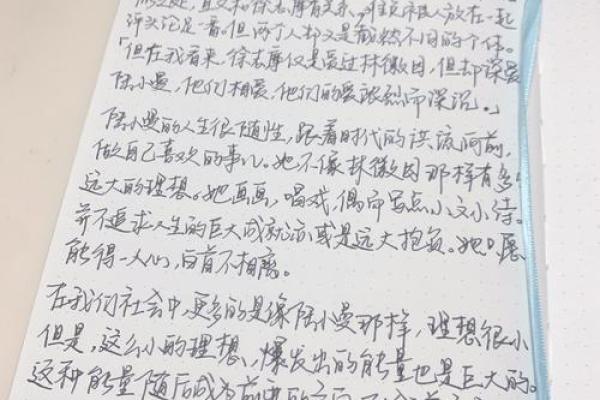 且又和徐志摩有关系,
评头论足一番。但两个人却又是截然不同的个体。
「但在我看来,徐志摩仅是爱过林徽因,但却深爱
陆小曼,他们相爱,他们的爱浓烈而深沉。」
陆小曼的人生很随性,跟着时代的洪流向前,
做自己喜欢的事儿。她不像林徽因那样有多么
远大的理想。她画画,唱戏,偶而写点小文小诗。
并不追求人生的巨大成就亦或是远大抱负。她只愿
能得一人心,白首不相离。
在我们社会中,更多的是像陆小曼那样,理想很小
但是,这么小的理想,爆发出的能量也是巨大的。
这种能量随后成为前进的